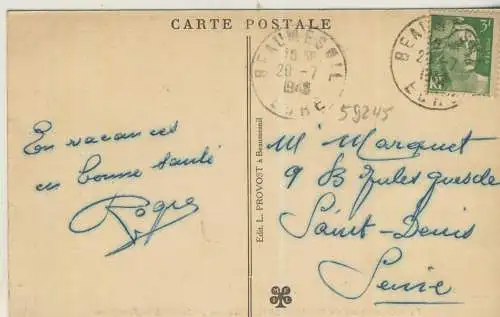 CARTE POSTALE
BEAUMESNIL
20-7
EURE
3F
59245
En vacances
en bonne santé
Roger
Edit. L. PROVOST à Beaumesnil
M Marquet
9 B Jules guesde
Saint-Denis
Seine
BEAUM
EURE